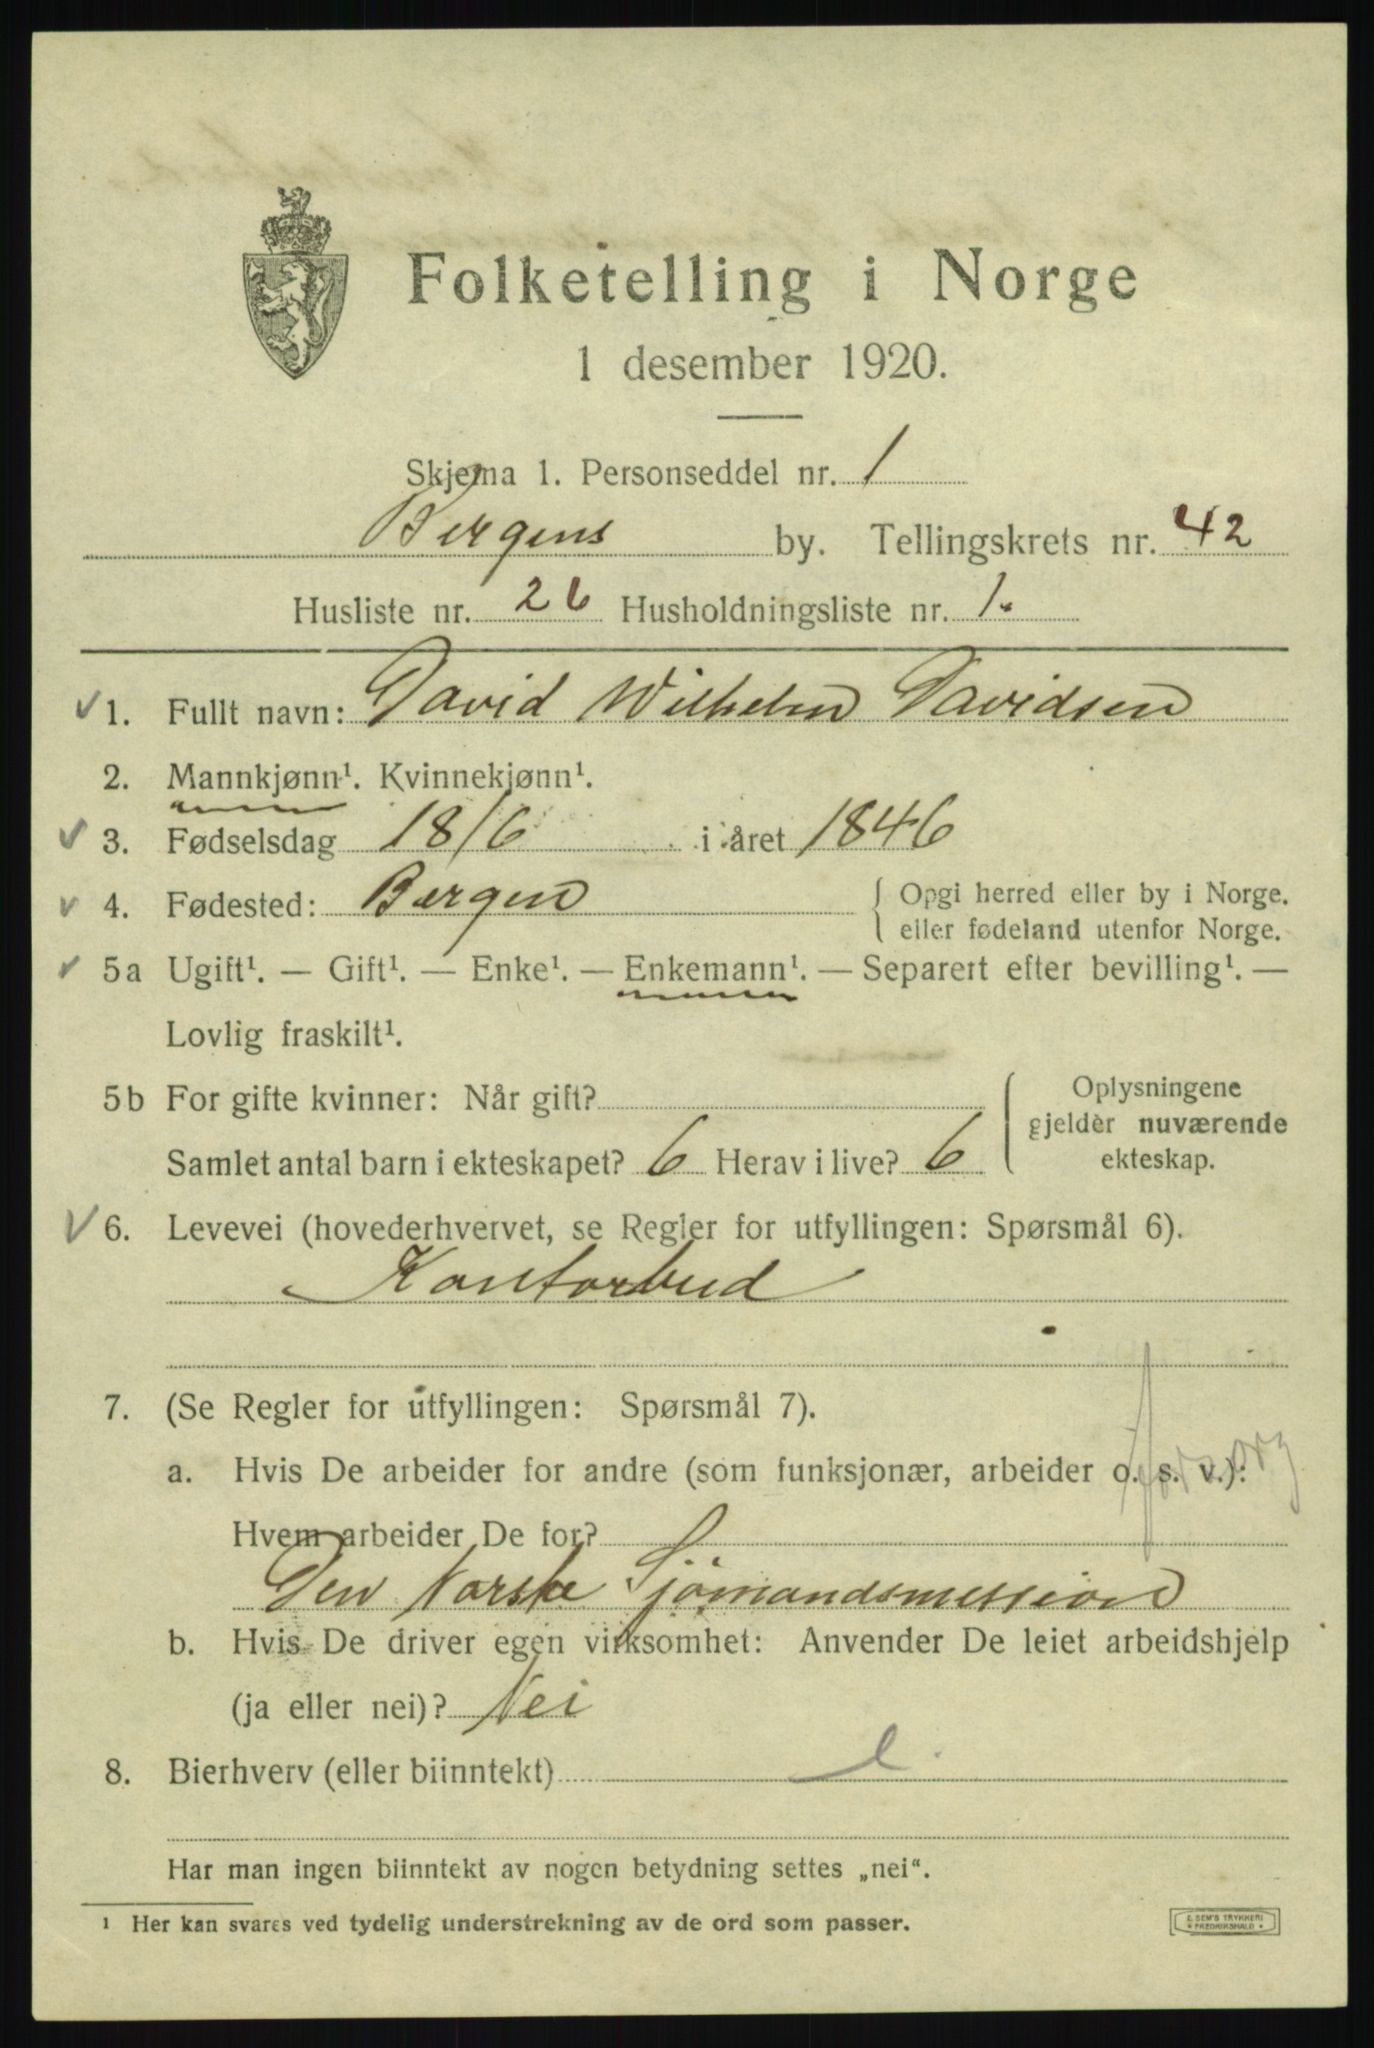 Folketelling i Norge
1 desember 1920.
Skjema 1. Personseddel nr. 1
Bergens by. Tellingskrets nr. 42
Husliste nr. 26 Husholdningsliste nr. 1.
✓ 1. Fullt navn: David Wilhelm Davidsen
2. Mannkjønn¹. Kvinnekjønn¹.
✓ 3. Fødselsdag 18/6 i året 1846
✓ 4. Fødested: Bergen { Opgi herred eller by i Norge.
eller fødeland utenfor Norge.
✓ 5a Ugift¹. — Gift¹. — Enke¹. — Enkemann¹. — Separert efter bevilling¹. —
Lovlig fraskilt¹.
5b For gifte kvinner: Når gift?
Samlet antal barn i ekteskapet? 6 Herav i live? 6
Oplysningene
gjelder nuværende
ekteskap.
✓ 6. Levevei (hovederhvervet, se Regler for utfyllingen: Spørsmål 6).
Kontorbud
7. (Se Regler for utfyllingen: Spørsmål 7).
a. Hvis De arbeider for andre (som funksjonær, arbeider o. s. v.):
Hvem arbeider De for?
Den Norske Sjömandsmission
b. Hvis De driver egen virksomhet: Anvender De leiet arbeidshjelp
(ja eller nei)? Nei
8. Bierhverv (eller biinntekt)
Har man ingen biinntekt av nogen betydning settes „nei“.
¹ Her kan svares ved tydelig understrekning av de ord som passer.
E. SEM'S TRYKKERI
FREDRIKSHALD